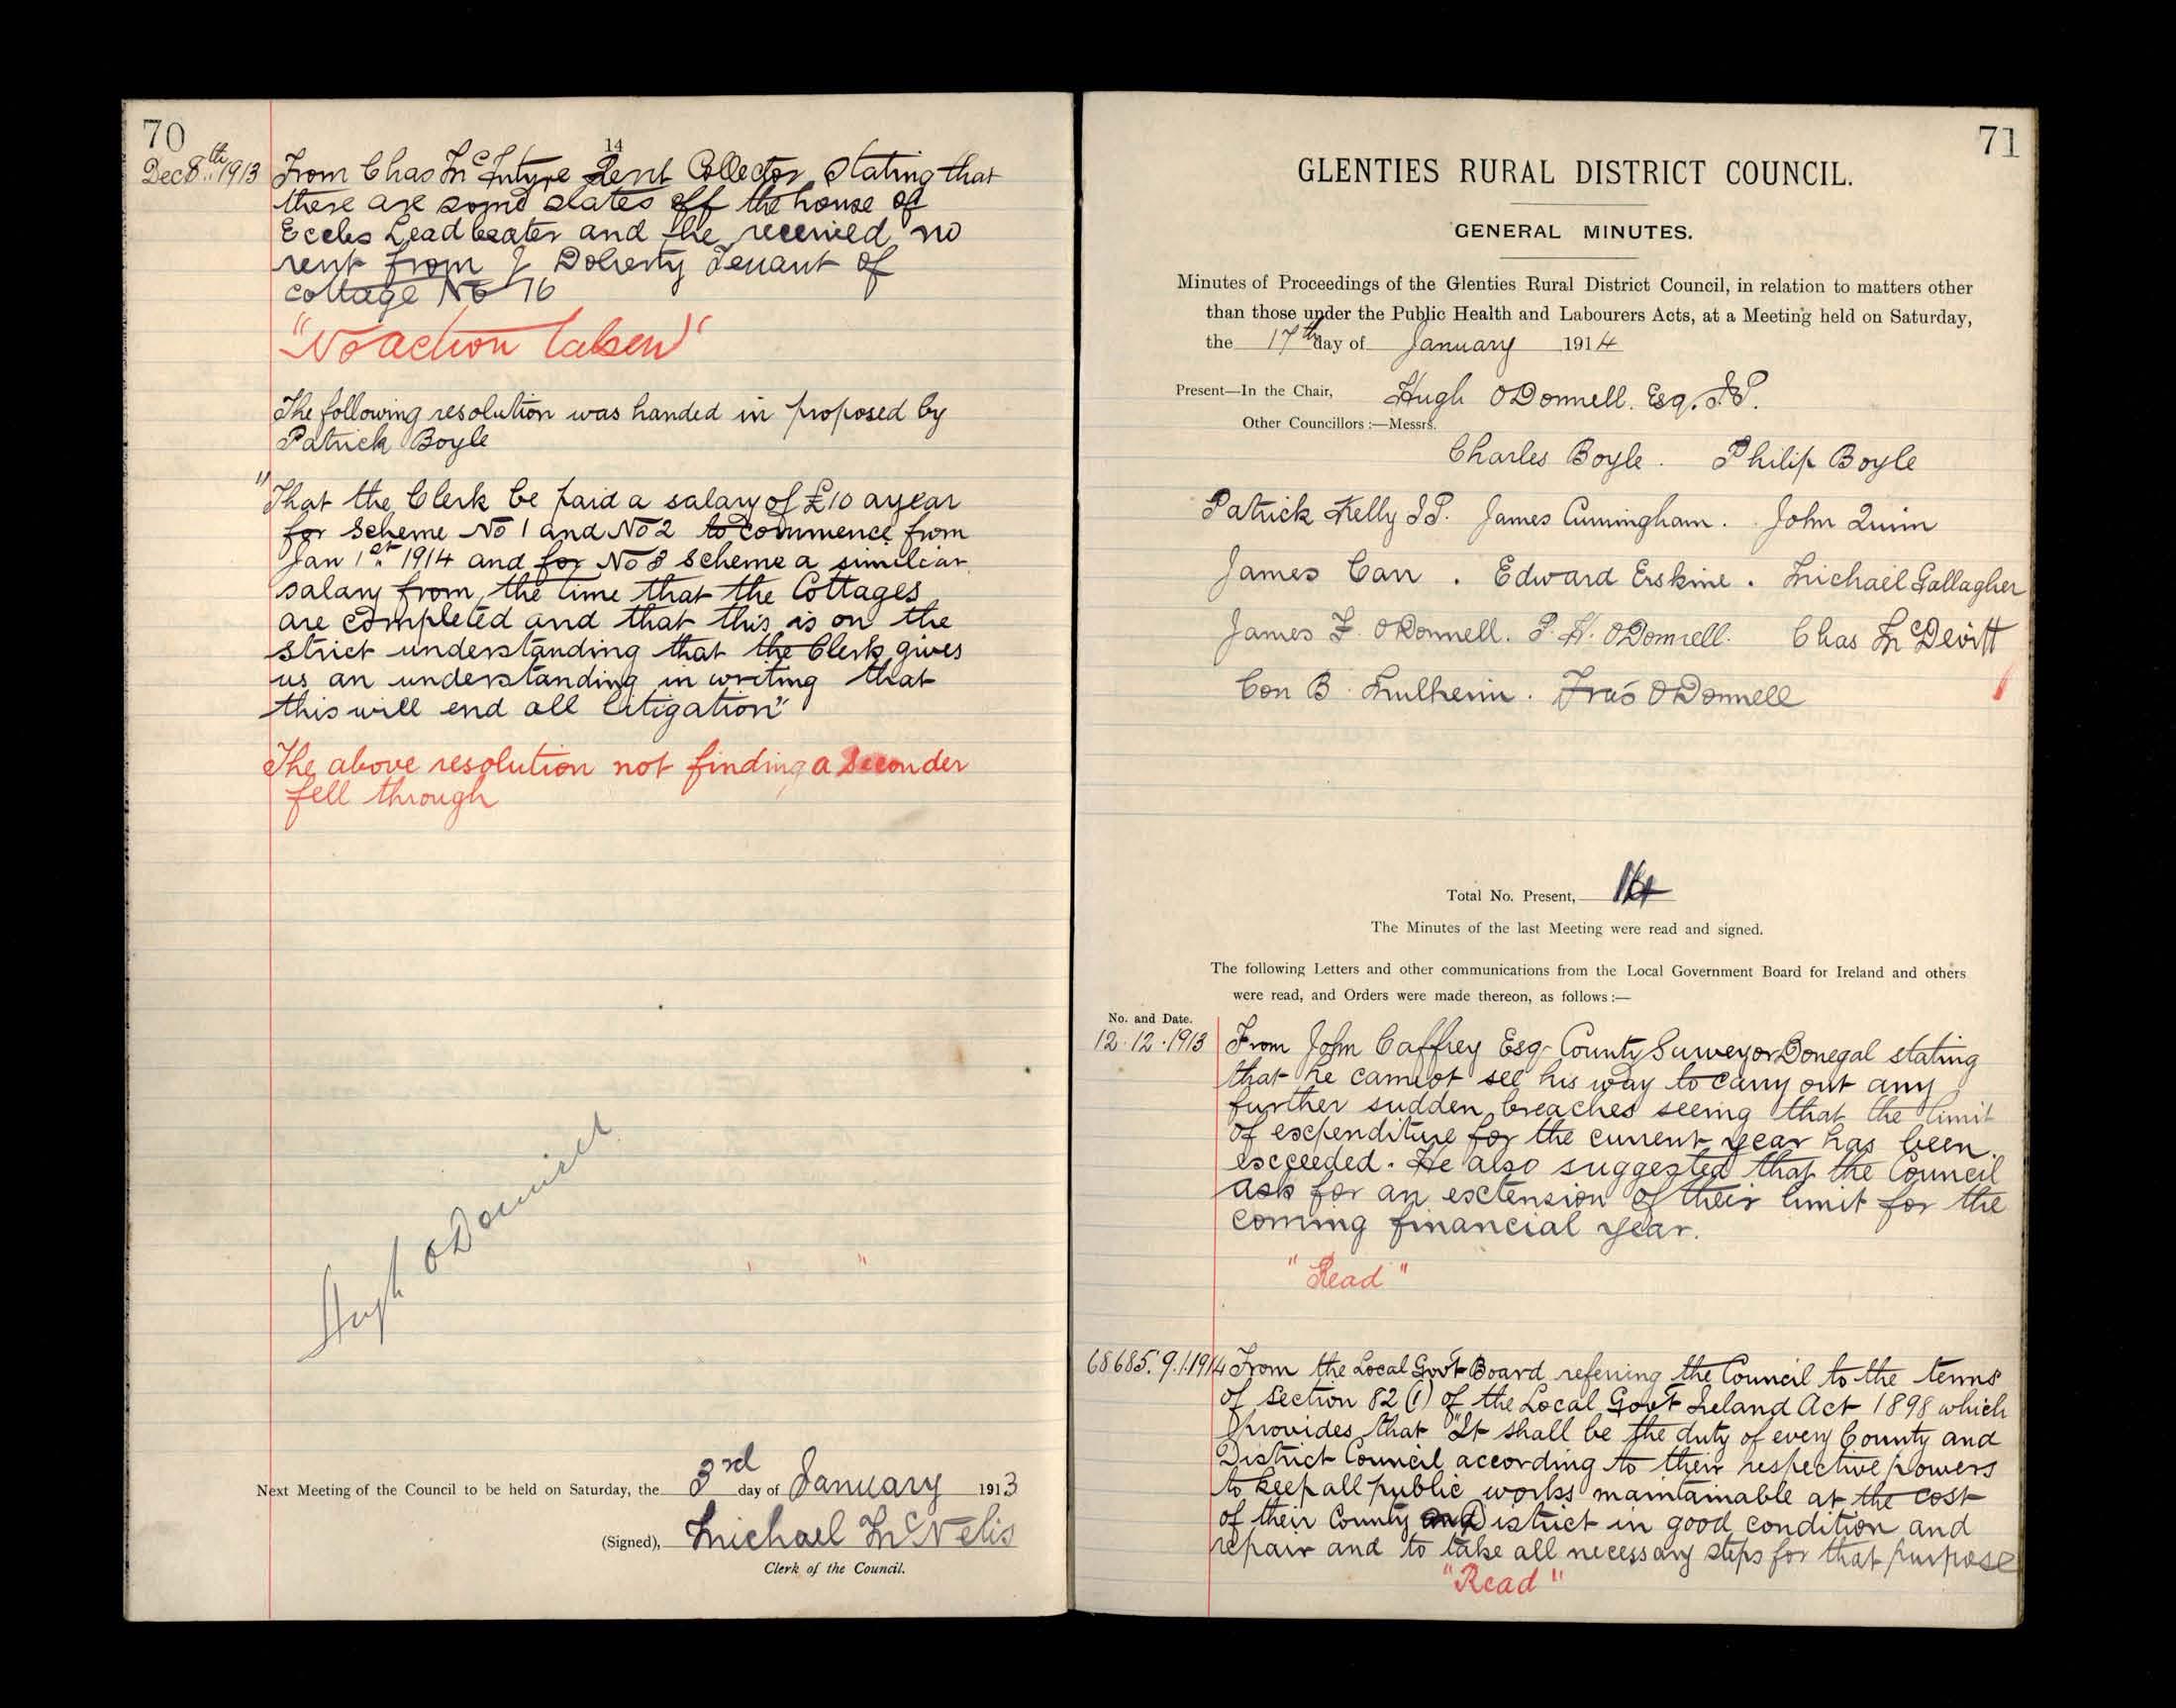 70
14
Dec 8th 1913 From Chas McIntyre Rent Collector stating that
there are some slates off the house of
Eccles Leadbeater and the received no
rent from J Doherty Tenant of
cottage No 76
"No action taken"
The following resolution was handed in proposed by
Patrick Boyle
"That the Clerk be paid a salary of £10 a year
for Scheme No 1 and No 2 to commence from
Jan 1st 1914 and for No 3 Scheme a similiar
salary from the time that the Cottages
are completed and that this is on the
strict understanding that the Clerk gives
us an understanding in writing that
this will end all litigation"
The above resolution not finding a Seconder
fell through
Hugh O'Donnell
Next Meeting of the Council to be held on Saturday, the 3rd day of January 1913
(Signed), Michael McNelis
Clerk of the Council.
71
GLENTIES RURAL DISTRICT COUNCIL.
GENERAL MINUTES.
Minutes of Proceedings of the Glenties Rural District Council, in relation to matters other
than those under the Public Health and Labourers Acts, at a Meeting held on Saturday,
the 17th day of January 1914
Present—In the Chair, Hugh O'Donnell. Esq. J.P.
Other Councillors :—Messrs.
Charles Boyle. Philip Boyle
Patrick Kelly J P. James Cunningham. John Quinn
James Carr. Edward Erskine. Michael Gallagher
James F. O'Donnell. P. H. O'Donnell. Chas McDevitt
Con B. Mulhern. Fras O'Donnell
Total No. Present, 14
The Minutes of the last Meeting were read and signed.
The following Letters and other communications from the Local Government Board for Ireland and others
were read, and Orders were made thereon, as follows :—
No. and Date.
12.12.1913 From John Caffrey Esq. County Surveyor Donegal stating
that he cannot see his way to carry out any
further sudden breaches seeing that the limit
of expenditure for the current year has been
exceeded. He also suggested that the Council
ask for an extension of their limit for the
coming financial year.
"Read"
68685. 9.1.1914 From the Local Govt Board referring the Council to the terms
of section 82 (1) of the Local Govt Ireland Act 1898 which
provides that "It shall be the duty of every County and
District Council according to their respective powers
to keep all public works maintainable at the cost
of their County and District in good condition and
repair and to take all necessary steps for that purpose
"Read"